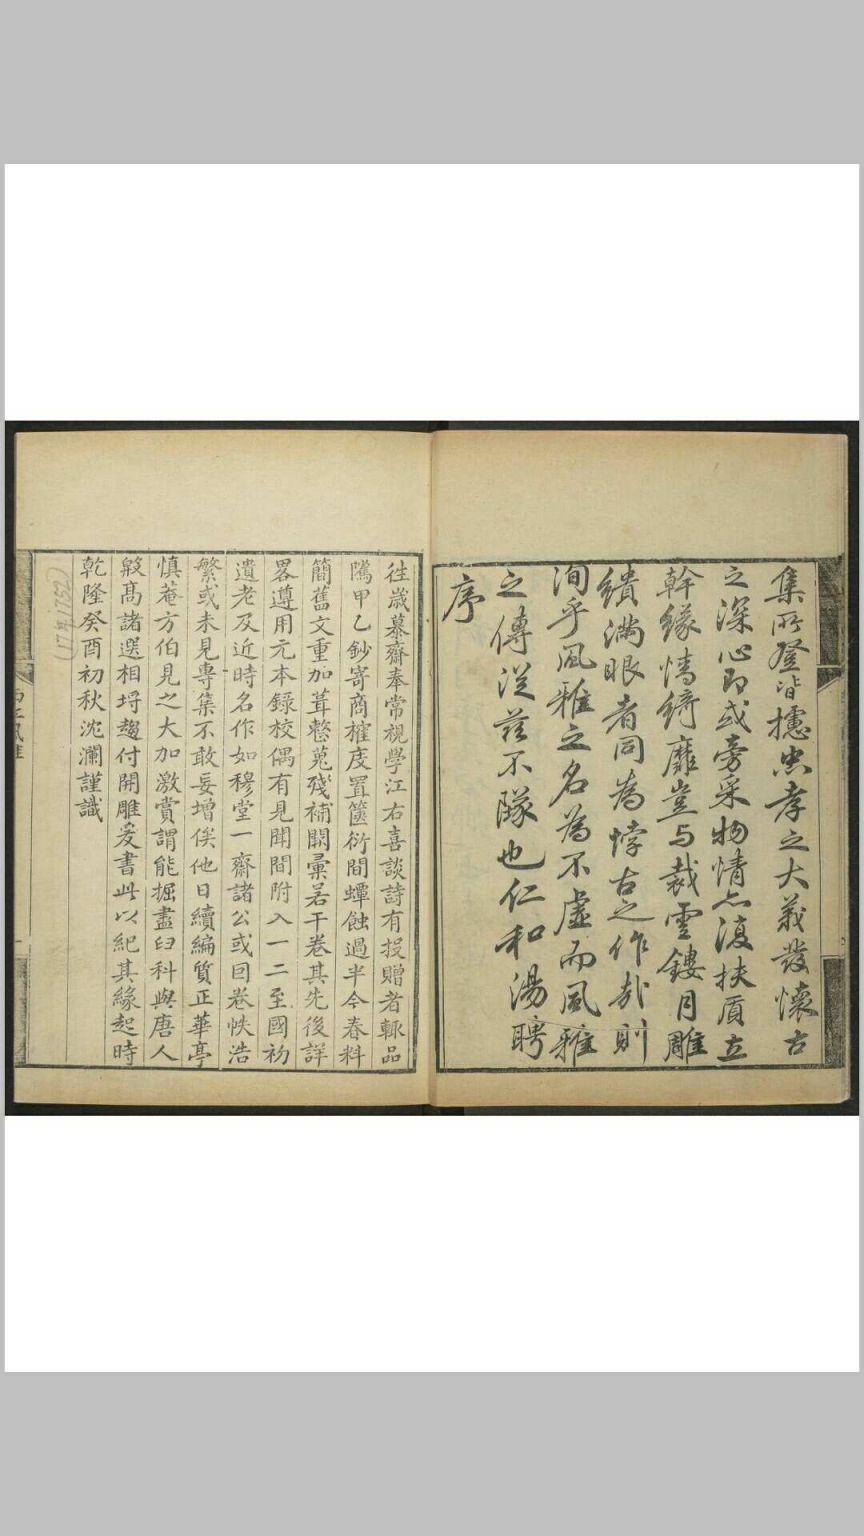 集所登皆攄忠孝之大義發懷古
之深心即或旁采物情亦復扶質立
幹緣情綺靡豈与裁雲鏤月雕
繢滿眼者同為悖古之作哉則
洵乎風雅之名為不虛而風雅
之傳從茲不隊也仁和湯聘
序
往歲慕齋奉常視學江右喜談詩有投贈者輒品
隲甲乙鈔寄商榷庋置篋衍間蟫蝕過半今春料
簡舊文重加葺整蒐殘補闕彙若干卷其先後詳
畧遵用元本錄校偶有見聞間附入一二至國初
遺老及近時名作如穆堂一齋諸公或回卷帙浩
繁或未見專集不敢妄增俟他日續編質正華亭
慎菴方伯見之大加激賞謂能掘盡臼科與唐人
殷髙諸選相埒趣付開雕爰書此以紀其緣起時
乾隆癸酉初秋沈瀾謹識
(17與1752)
西江風雅